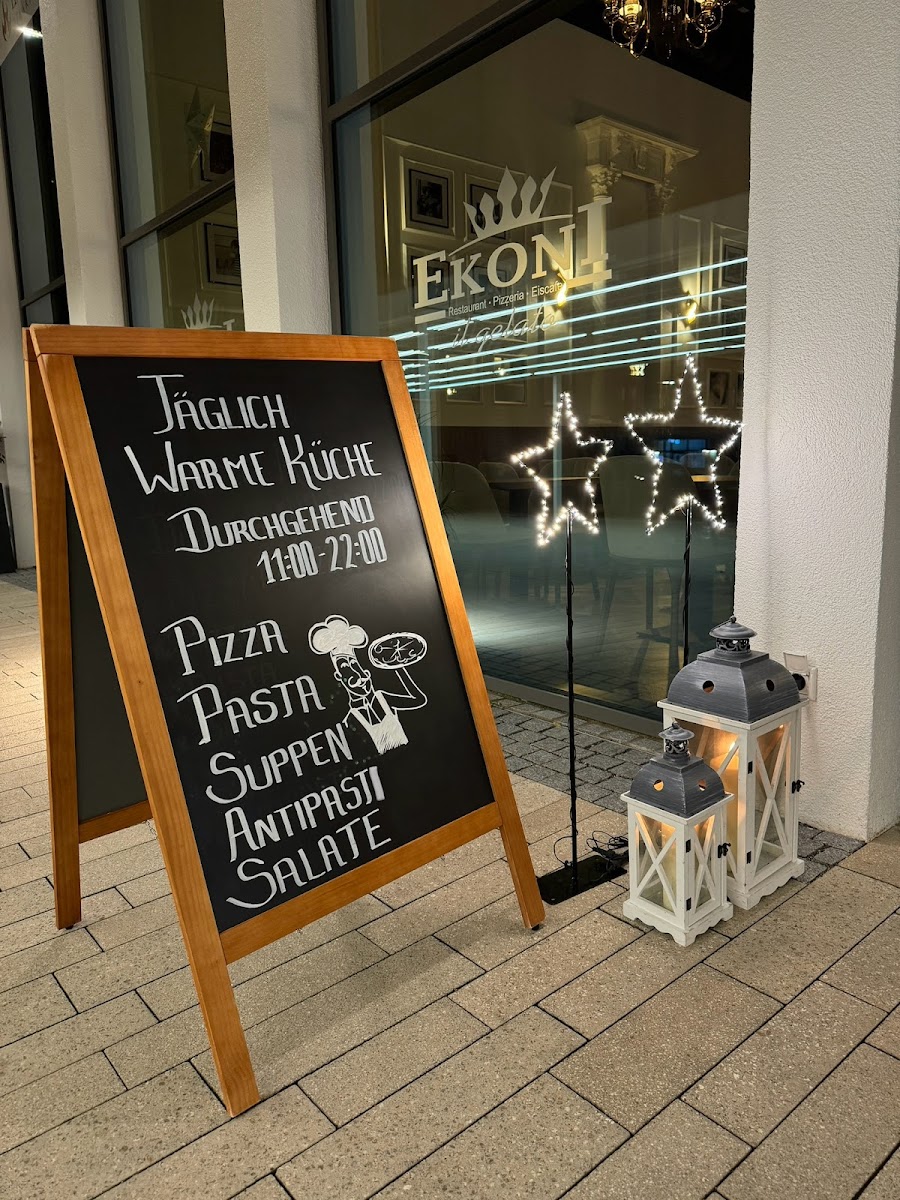 EKONI
Restaurant · Pizzeria · Eiscafe
il gelato
TÄGLICH
WARME KÜCHE
DURCHGEHEND
11:00-22:00
PIZZA
PASTA
SUPPEN
ANTIPASTI
SALATE